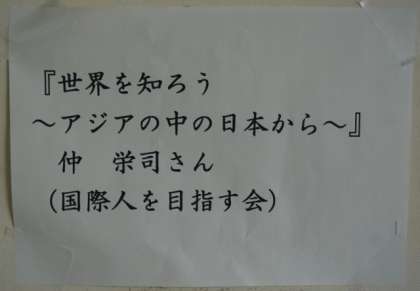 『世界を知ろう
～アジアの中の日本から～』
仲　栄司さん
（国際人を目指す会）